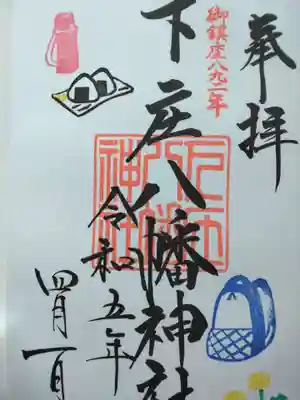 奉拝
御鎮座八九二年
下庄八幡神社
令和五年
四月一日